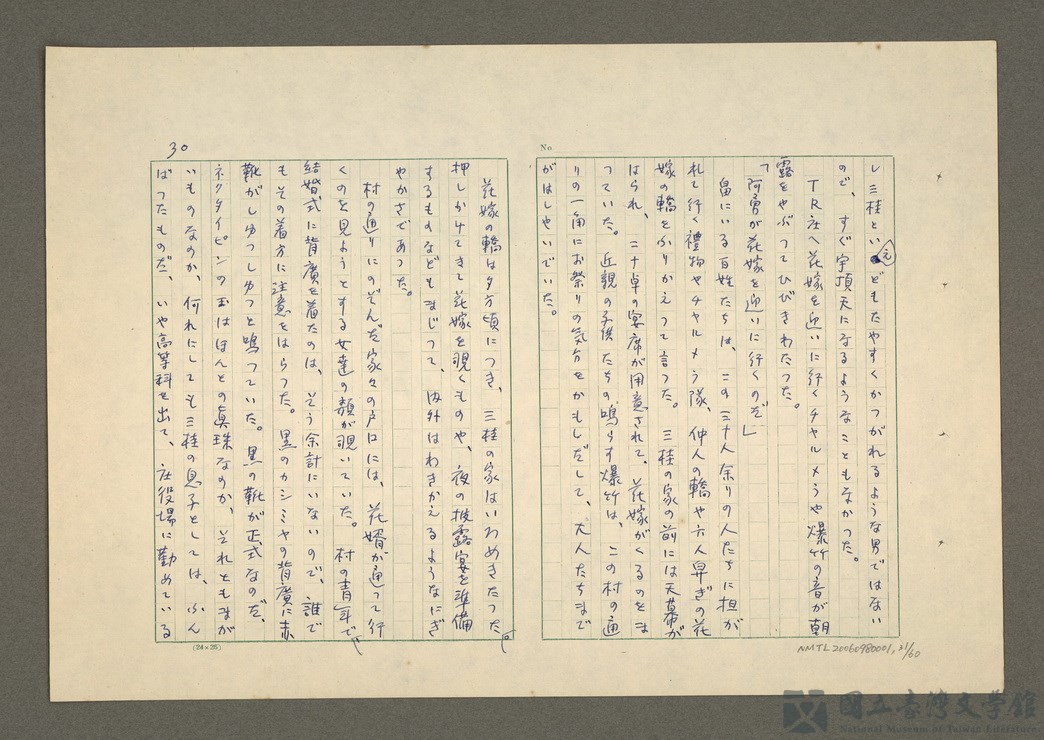 No
し三桂といえどもたやすくかつがれるような男ではない
ので、すぐ宇頂天になるようなこともなかった。
TR庄へ花嫁を迎いに行くチャルメラや爆竹の音が朝
露をやぶってひびきわたった。
「阿勇が花嫁を迎いに行くのだ」
畠にいる百姓たちは、この三十人余りの人たちに担が
れて行く禮物やチャルメラ隊、仲人の轎や六人舁ぎの花
嫁の轎をふりかえって言った。三桂の家の前には天幕が
はられ、二十卓の宴席が用意されて、花嫁がくるのをま
っていた。近親の子供たちの鳴らす爆竹は、この村の通
りの一角にお祭りの気分をかもしだして、大人たちまで
がはしゃいでいた。
30
花嫁の轎は夕方頃につき、三桂の家はいろめきたった。
押しかけてきて花嫁を覗くものや、夜の披露宴を準備
するものなどもまじって、内外はわきかえるようなにぎ
やかさであった。
村の通りにのぞんだ家々の戸口には、花婿が通って行
くのを見ようとする女達の顔が覗いていた。村の青年で、
結婚式に背廣を着たのは、そう余計にいないので、誰で
もその着方に注意をはらった。黒のカシミヤの背廣に赤
靴がしゆつしゆつと鳴っていた。黒の靴が正式なのだ、
ネクタイピンの玉はほんとの真珠なのか、それともまが
いものなのか、何れにしても三桂の息子としては、ふん
ばったものだ、いや高等科を出て、庄役場に勤めている
(24×25)
NMTL20060980001, 31/60
國立臺灣文學館
National Museum of Taiwan Literature